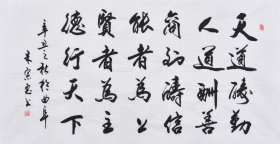 天道酬勤
人道酬善
商道酬信
能者為
賢者為主
德行天下
辛丑之秋於曲阜